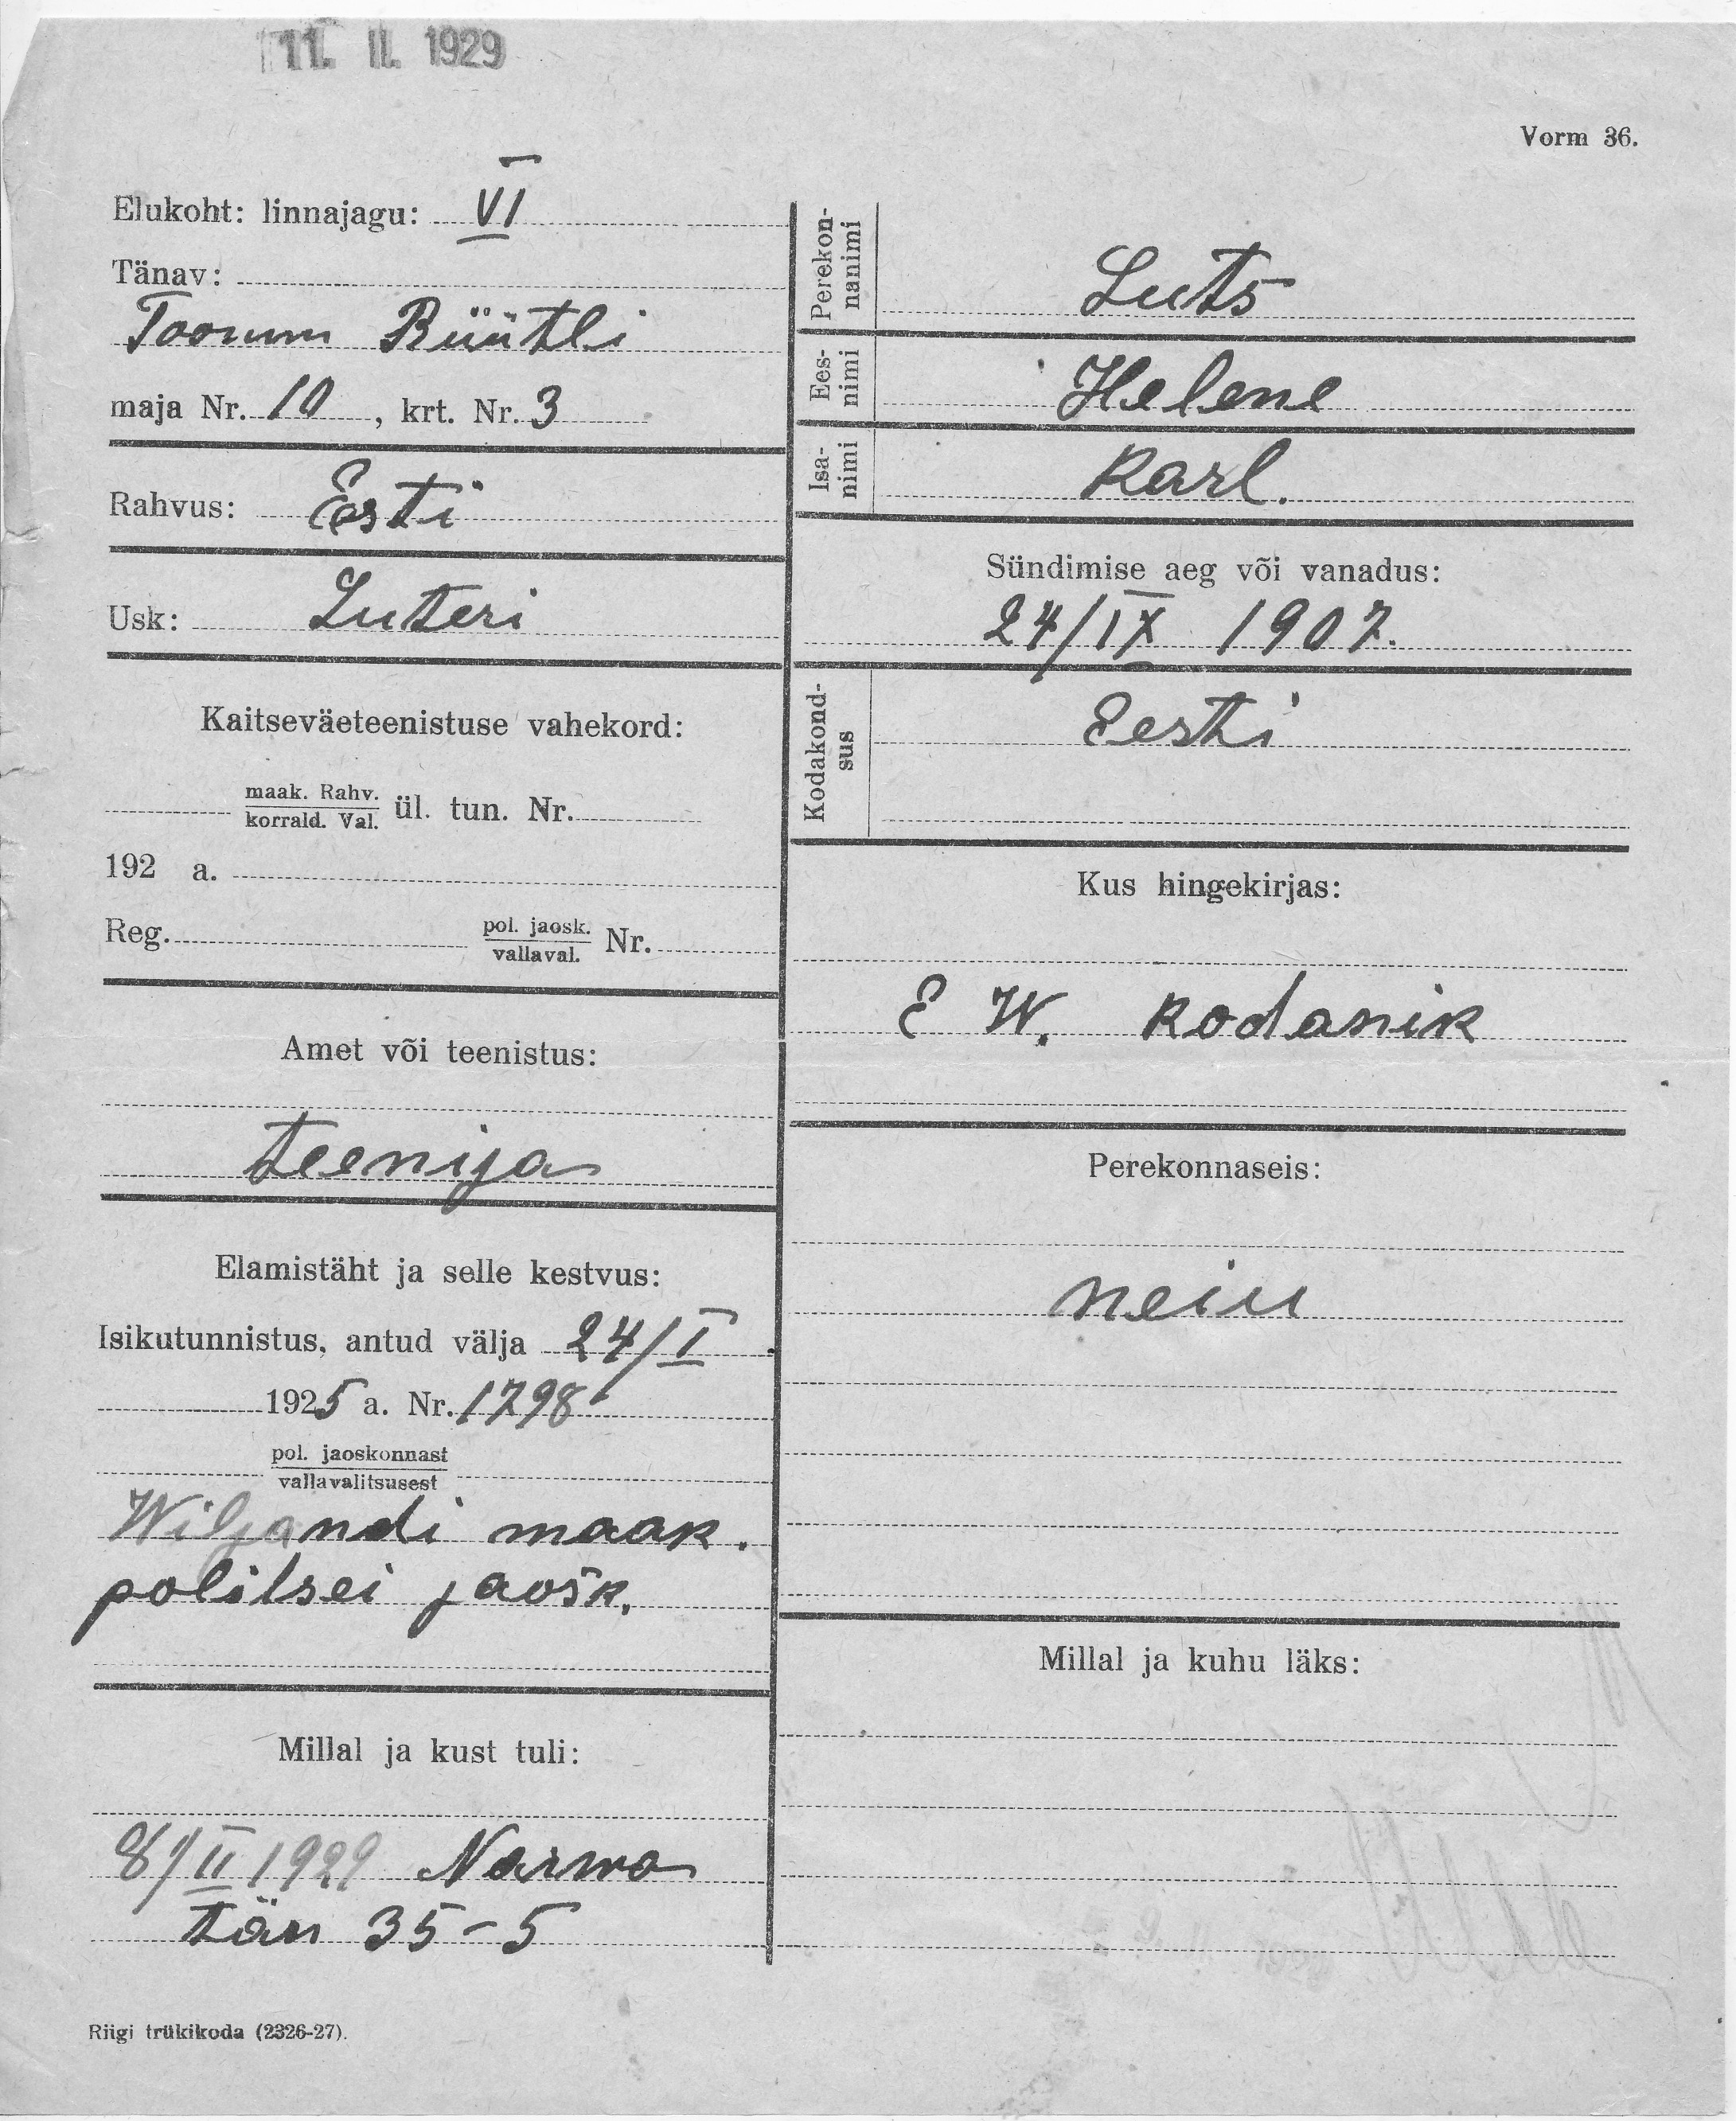 11. II. 1929
Vorm 36.
Elukoht: linnajagu: VI
Tänav:
Toomm Rüütli
maja Nr. 10, krt. Nr. 3
Rahvus: Esti
Usk: Luteri
Kaitseväeteenistuse vahekord:
maak. Rahv.
korrald. Val.
ül. tun. Nr.
192 a.
Reg.
pol. jaosk.
vallaval.
Nr.
Amet või teenistus:
teenija
Elamistäht ja selle kestvus:
Isikutunnistus, antud välja 24/I
1925 a. Nr. 1798
pol. jaoskonnast
vallavalitsusest
Wiljandi maak.
politsei jaosk.
Millal ja kust tuli:
8/II 1929 Narwa
tän 35-5
Riigi trükikoda (2326-27).
Perekon-
nanimi
Luts
Ees-
nimi
Helene
Isa-
nimi
Karl.
Sündimise aeg või vanadus:
24/IX 1907.
Kodakond-
sus
Eesti
Kus hingekirjas:
E W. kodanik
Perekonnaseis:
neiu
Millal ja kuhu läks: